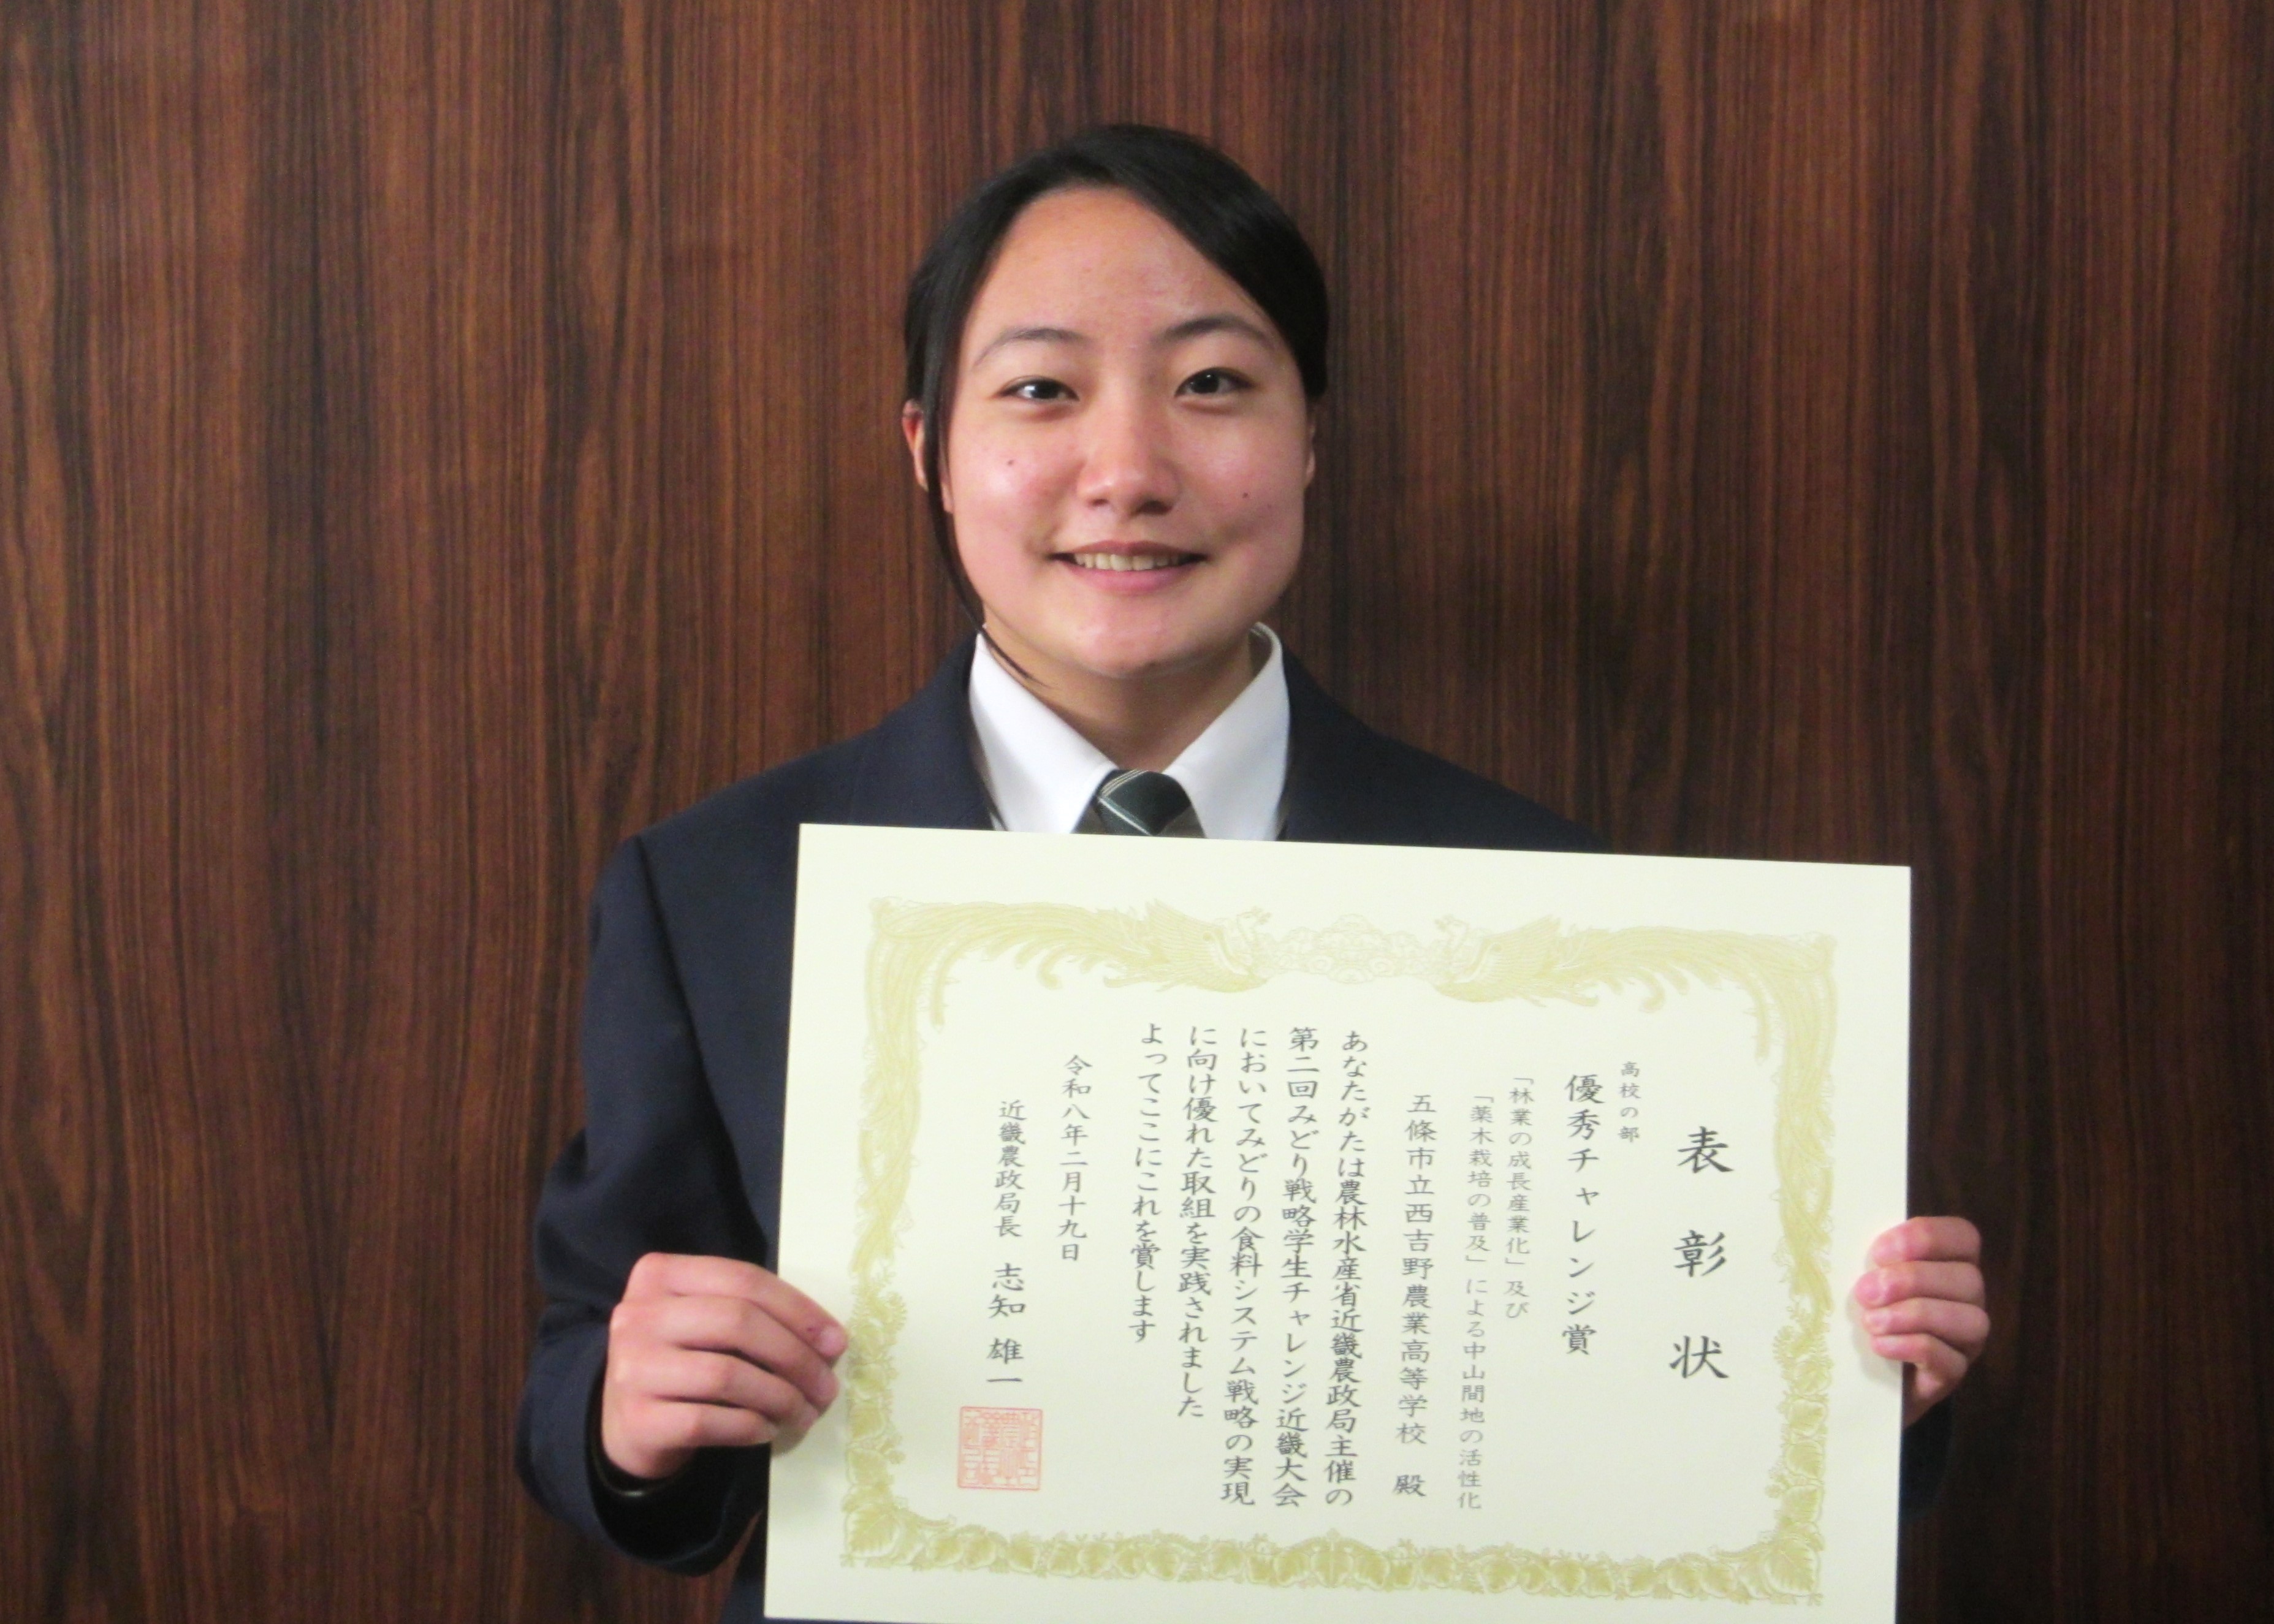 表彰状
高校の部
優秀チャレンジ賞
「林業の成長産業化」及び
「薬木栽培の普及」による中山間地の活性化
五條市立西吉野農業高等学校　殿
あなたがたは農林水産省近畿農政局主催の
第二回みどり戦略学生チャレンジ近畿大会
においてみどりの食料システム戦略の実現
に向け優れた取組を実践されました
よってここにこれを賞します
令和八年二月十九日
近畿農政局長　志知　雄一